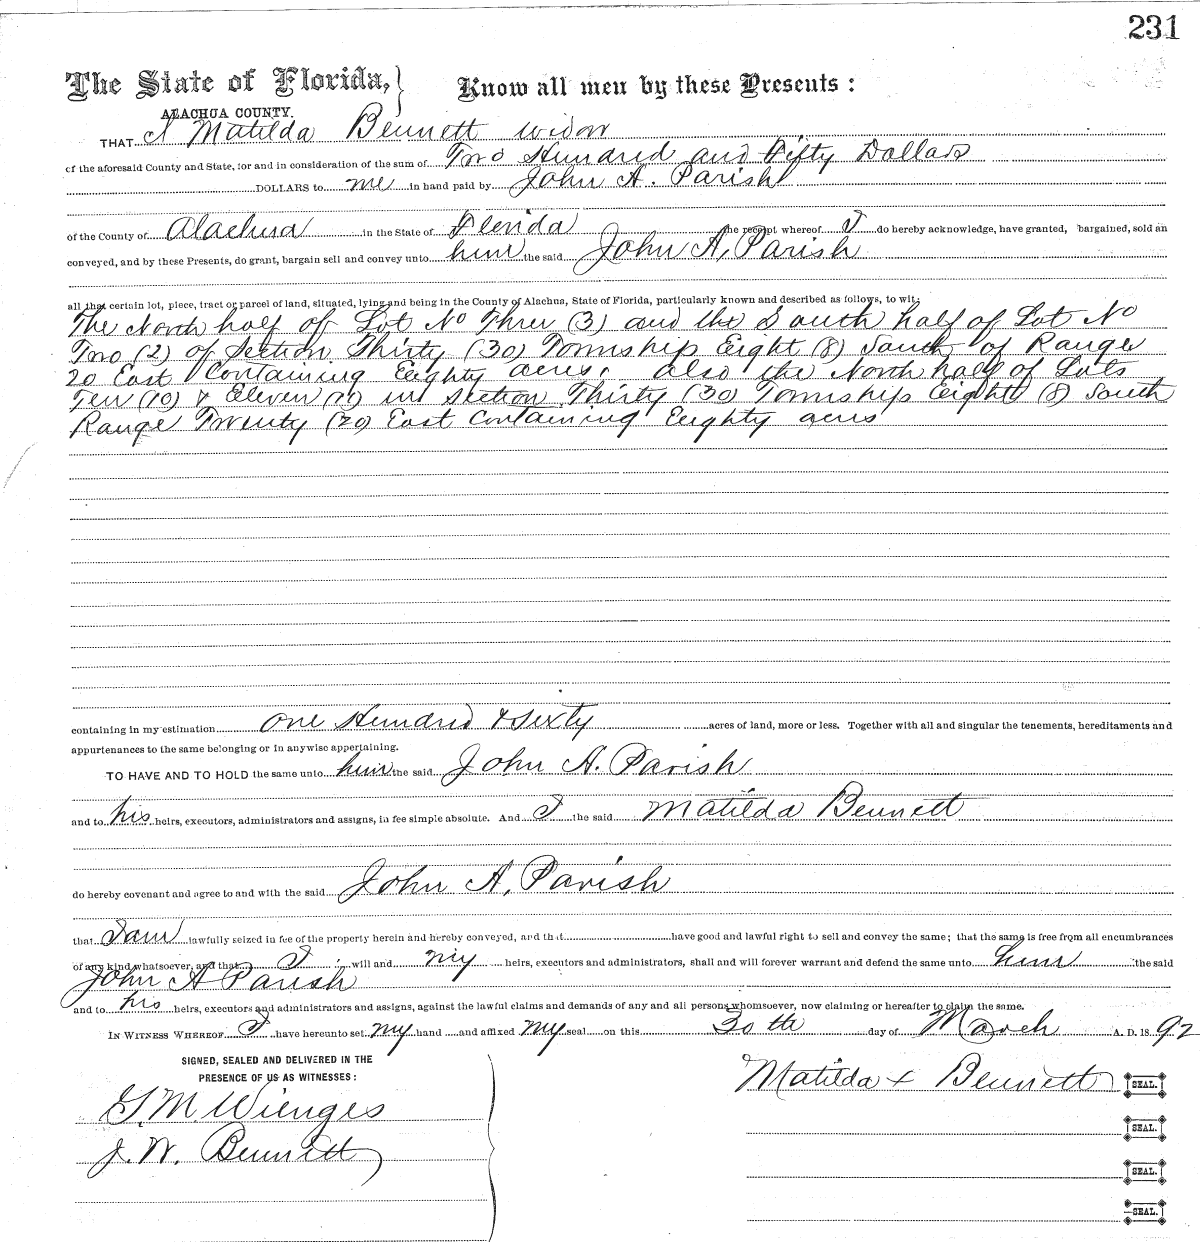 231
The State of Florida, } Know all men by these Presents :
ALACHUA COUNTY.
THAT I Matilda Bennett widow
of the aforesaid County and State, for and in consideration of the sum of Two Hundred and Fifty Dollars
DOLLARS to me in hand paid by John A. Parish
of the County of Alachua in the State of Florida the receipt whereof I do hereby acknowledge, have granted, bargained, sold an
conveyed, and by these Presents, do grant, bargain sell and convey unto him the said John A, Parish
all that certain lot, piece, tract or parcel of land, situated, lying and being in the County of Alachua, State of Florida, particularly known and described as follows, to wit;
The North half of Lot No Three (3) and the South half of Lot No
Two (2) of Section Thirty (30) Township Eight (8) South of Range
20 East Containing Eighty acres, also the North half of Lots
Ten (10) & Eleven (11) in Section Thirty (30) Township Eight (8) South
Range Twenty (20) East Containing Eighty acres
containing in my estimation one Hundred & Sixty acres of land, more or less. Together with all and singular the tenements, hereditaments and
appurtenances to the same belonging or in anywise appertaining.
TO HAVE AND TO HOLD the same unto him the said John A. Parish
and to his heirs, executors, administrators and assigns, in fee simple absolute. And I the said Matilda Bennett
do hereby covenant and agree to and with the said John A, Parish
that I am lawfully seized in fee of the property herein and hereby conveyed, and that have good and lawful right to sell and convey the same; that the same is free from all encumbrances
of any kind whatsoever, and that I will and my heirs, executors and administrators, shall and will forever warrant and defend the same unto him the said
John A Parish
and to his heirs, executors and administrators and assigns, against the lawful claims and demands of any and all persons whomsoever, now claiming or hereafter to claim the same.
IN WITNESS WHEREOF I have hereunto set my hand and affixed my seal on this 30th day of March A. D. 1892
SIGNED, SEALED AND DELIVERED IN THE
PRESENCE OF US AS WITNESSES :
Matilda x Bennett SEAL.
G. M. Wienges
SEAL.
J. W. Bennett
SEAL.
SEAL.